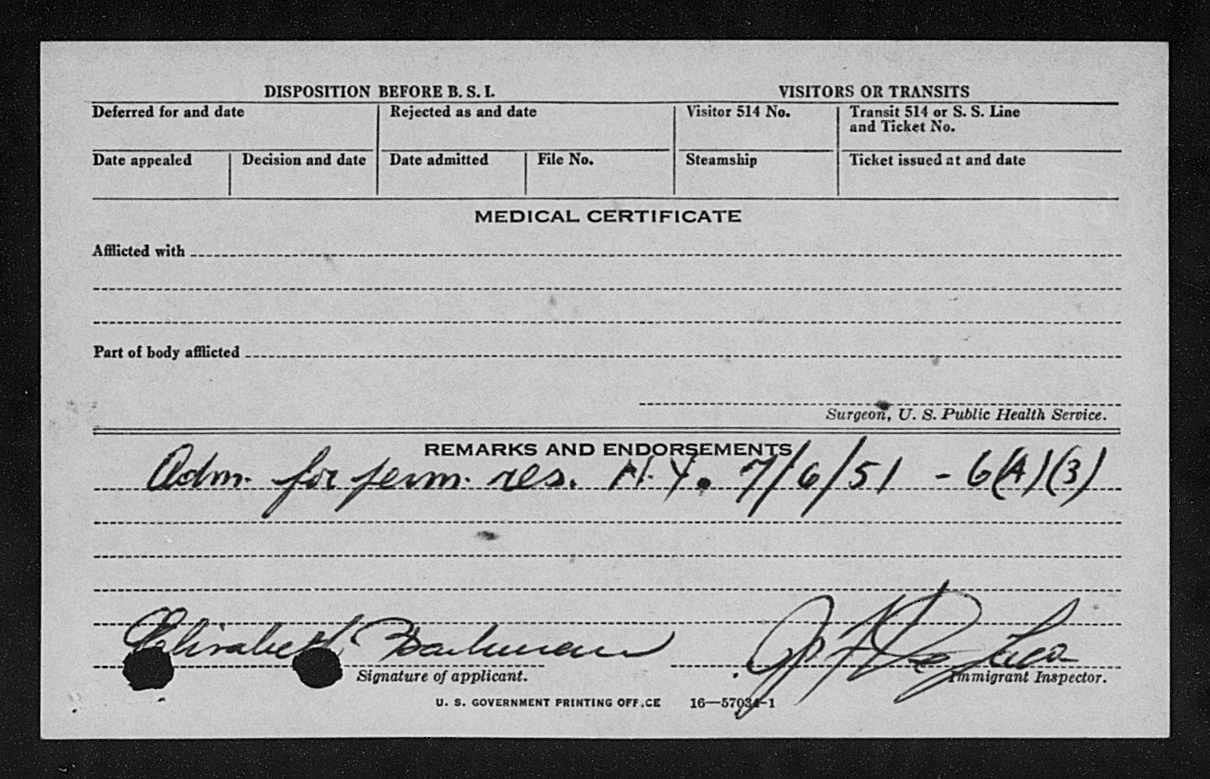 DISPOSITION BEFORE B. S. I.
VISITORS OR TRANSITS
Deferred for and date
Rejected as and date
Visitor 514 No.
Transit 514 or S. S. Line
and Ticket No.
Date appealed
Decision and date
Date admitted
File No.
Steamship
Ticket issued at and date
MEDICAL CERTIFICATE
Afflicted with
Part of body afflicted
Surgeon, U. S. Public Health Service.
REMARKS AND ENDORSEMENTS
Adm. for perm. res. N.Y. 7/6/51 - 6(A)(3)
Elisabeth
Signature of applicant.
Immigrant Inspector.
U. S. GOVERNMENT PRINTING OFF.CE 16—57034-1